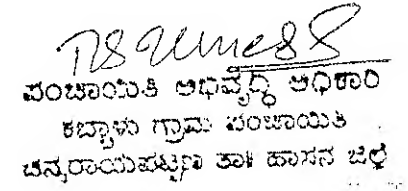 ಪಂಚಾಯಿತಿ ಅಭಿವೃದ್ಧಿ ಅಧಿಕಾರಿ
ಕಬ್ಬಾಳು ಗ್ರಾಮ ಪಂಚಾಯಿತಿ
ಚನ್ನರಾಯಪಟ್ಟಣ ತಾಃ ಹಾಸನ ಜಿಲ್ಲೆ